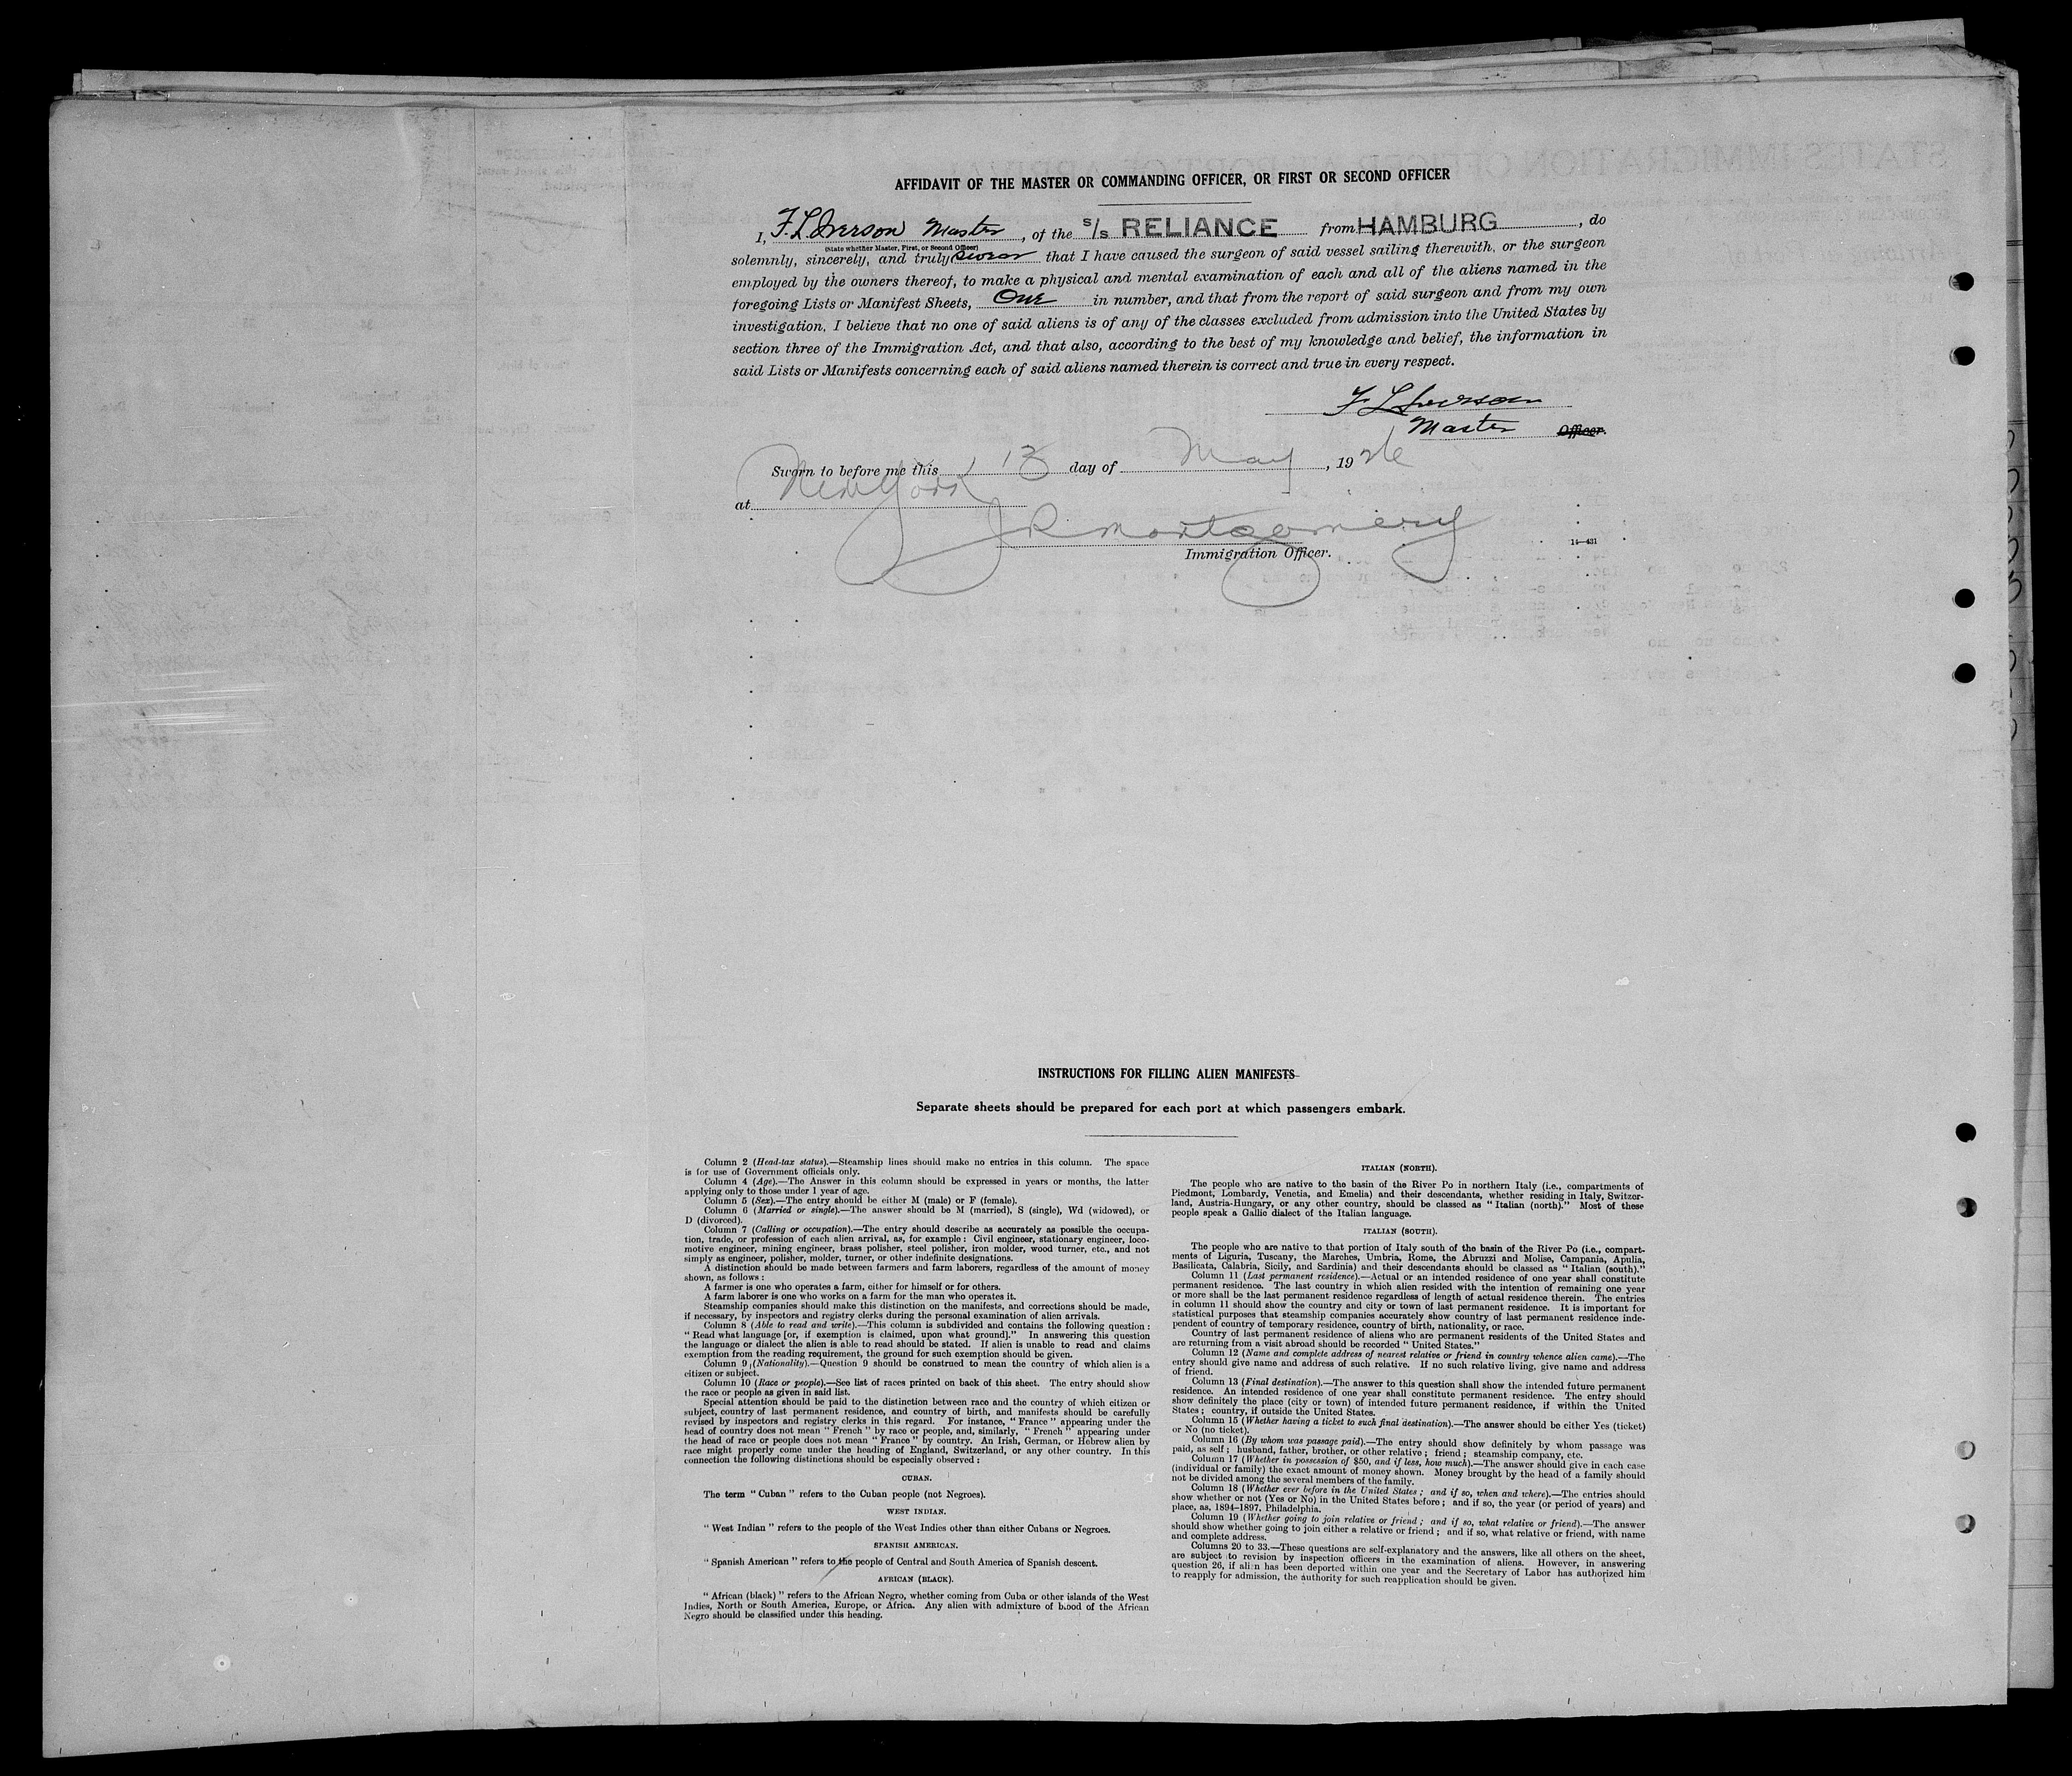 AFFIDAVIT OF THE MASTER OR COMMANDING OFFICER, OR FIRST OR SECOND OFFICER
I, F. L. Iverson Master, of the s/s RELIANCE from HAMBURG, do
(State whether Master, First, or Second Officer)
solemnly, sincerely, and truly swear that I have caused the surgeon of said vessel sailing therewith, or the surgeon
employed by the owners thereof, to make a physical and mental examination of each and all of the aliens named in the
foregoing Lists or Manifest Sheets, One in number, and that from the report of said surgeon and from my own
investigation, I believe that no one of said aliens is of any of the classes excluded from admission into the United States by
section three of the Immigration Act, and that also, according to the best of my knowledge and belief, the information in
said Lists or Manifests concerning each of said aliens named therein is correct and true in every respect.
F L Iverson
Master Officer.
Sworn to before me this 13 day of May, 1926
at New York
J R Montgomery
14—431
Immigration Officer.
INSTRUCTIONS FOR FILLING ALIEN MANIFESTS
Separate sheets should be prepared for each port at which passengers embark.
Column 2 (Head-tax status).—Steamship lines should make no entries in this column. The space
is for use of Government officials only.
Column 4 (Age).—The Answer in this column should be expressed in years or months, the latter
applying only to those under 1 year of age.
Column 5 (Sex).—The entry should be either M (male) or F (female).
Column 6 (Married or single).—The answer should be M (married), S (single), Wd (widowed), or
D (divorced).
Column 7 (Calling or occupation).—The entry should describe as accurately as possible the occupa-
tion, trade, or profession of each alien arrival, as, for example: Civil engineer, stationary engineer, loco-
motive engineer, mining engineer, brass polisher, steel polisher, iron molder, wood turner, etc., and not
simply as engineer, polisher, molder, turner, or other indefinite designations.
A distinction should be made between farmers and farm laborers, regardless of the amount of money
shown, as follows:
A farmer is one who operates a farm, either for himself or for others.
A farm laborer is one who works on a farm for the man who operates it.
Steamship companies should make this distinction on the manifests, and corrections should be made,
if necessary, by inspectors and registry clerks during the personal examination of alien arrivals.
Column 8 (Able to read and write).—This column is subdivided and contains the following question:
"Read what language [or, if exemption is claimed, upon what ground]." In answering this question
the language or dialect the alien is able to read should be stated. If alien is unable to read and claims
exemption from the reading requirement, the ground for such exemption should be given.
Column 9 (Nationality).—Question 9 should be construed to mean the country of which alien is a
citizen or subject.
Column 10 (Race or people).—See list of races printed on back of this sheet. The entry should show
the race or people as given in said list.
Special attention should be paid to the distinction between race and the country of which citizen or
subject, country of last permanent residence, and country of birth, and manifests should be carefully
revised by inspectors and registry clerks in this regard. For instance, "France" appearing under the
head of country does not mean "French" by race or people, and, similarly, "French" appearing under
the head of race or people does not mean "France" by country. An Irish, German, or Hebrew alien by
race might properly come under the heading of England, Switzerland, or any other country. In this
connection the following distinctions should be especially observed:
CUBAN.
The term "Cuban" refers to the Cuban people (not Negroes).
WEST INDIAN.
"West Indian" refers to the people of the West Indies other than either Cubans or Negroes.
SPANISH AMERICAN.
"Spanish American" refers to the people of Central and South America of Spanish descent.
AFRICAN (BLACK).
"African (black)" refers to the African Negro, whether coming from Cuba or other islands of the West
Indies, North or South America, Europe, or Africa. Any alien with admixture of blood of the African
Negro should be classified under this heading.
ITALIAN (NORTH).
The people who are native to the basin of the River Po in northern Italy (i.e., compartments of
Piedmont, Lombardy, Venetia, and Emelia) and their descendants, whether residing in Italy, Switzer-
land, Austria-Hungary, or any other country, should be classed as "Italian (north)." Most of these
people speak a Gallic dialect of the Italian language.
ITALIAN (SOUTH).
The people who are native to that portion of Italy south of the basin of the River Po (i.e., compart-
ments of Liguria, Tuscany, the Marches, Umbria, Rome, the Abruzzi and Molise, Campania, Apulia,
Basilicata, Calabria, Sicily, and Sardinia) and their descendants should be classed as "Italian (south)."
Column 11 (Last permanent residence).—Actual or an intended residence of one year shall constitute
permanent residence. The last country in which alien resided with the intention of remaining one year
or more shall be the last permanent residence regardless of length of actual residence therein. The entries
in column 11 should show the country and city or town of last permanent residence. It is important for
statistical purposes that steamship companies accurately show country of last permanent residence inde-
pendent of country of temporary residence, country of birth, nationality, or race.
Country of last permanent residence of aliens who are permanent residents of the United States and
are returning from a visit abroad should be recorded "United States."
Column 12 (Name and complete address of nearest relative or friend in country whence alien came).—The
entry should give name and address of such relative. If no such relative living, give name and address
of friend.
Column 13 (Final destination).—The answer to this question shall show the intended future permanent
residence. An intended residence of one year shall constitute permanent residence. The entry should
show definitely the place (city or town) of intended future permanent residence, if within the United
States; country, if outside the United States.
Column 15 (Whether having a ticket to such final destination).—The answer should be either Yes (ticket)
or No (no ticket).
Column 16 (By whom was passage paid).—The entry should show definitely by whom passage was
paid, as self; husband, father, brother, or other relative; friend; steamship company, etc.
Column 17 (Whether in possession of $50, and if less, how much).—The answer should give in each case
(individual or family) the exact amount of money shown. Money brought by the head of a family should
not be divided among the several members of the family.
Column 18 (Whether ever before in the United States; and if so, when and where).—The entries should
show whether or not (Yes or No) in the United States before; and if so, the year (or period of years) and
place, as, 1894-1897, Philadelphia.
Column 19 (Whether going to join relative or friend; and if so, what relative or friend).—The answer
should show whether going to join either a relative or friend; and if so, what relative or friend, with name
and complete address.
Columns 20 to 33.—These questions are self-explanatory and the answers, like all others on the sheet,
are subject to revision by inspection officers in the examination of aliens. However, in answering
question 26, if alien has been deported within one year and the Secretary of Labor has authorized him
to reapply for admission, the authority for such reapplication should be given.